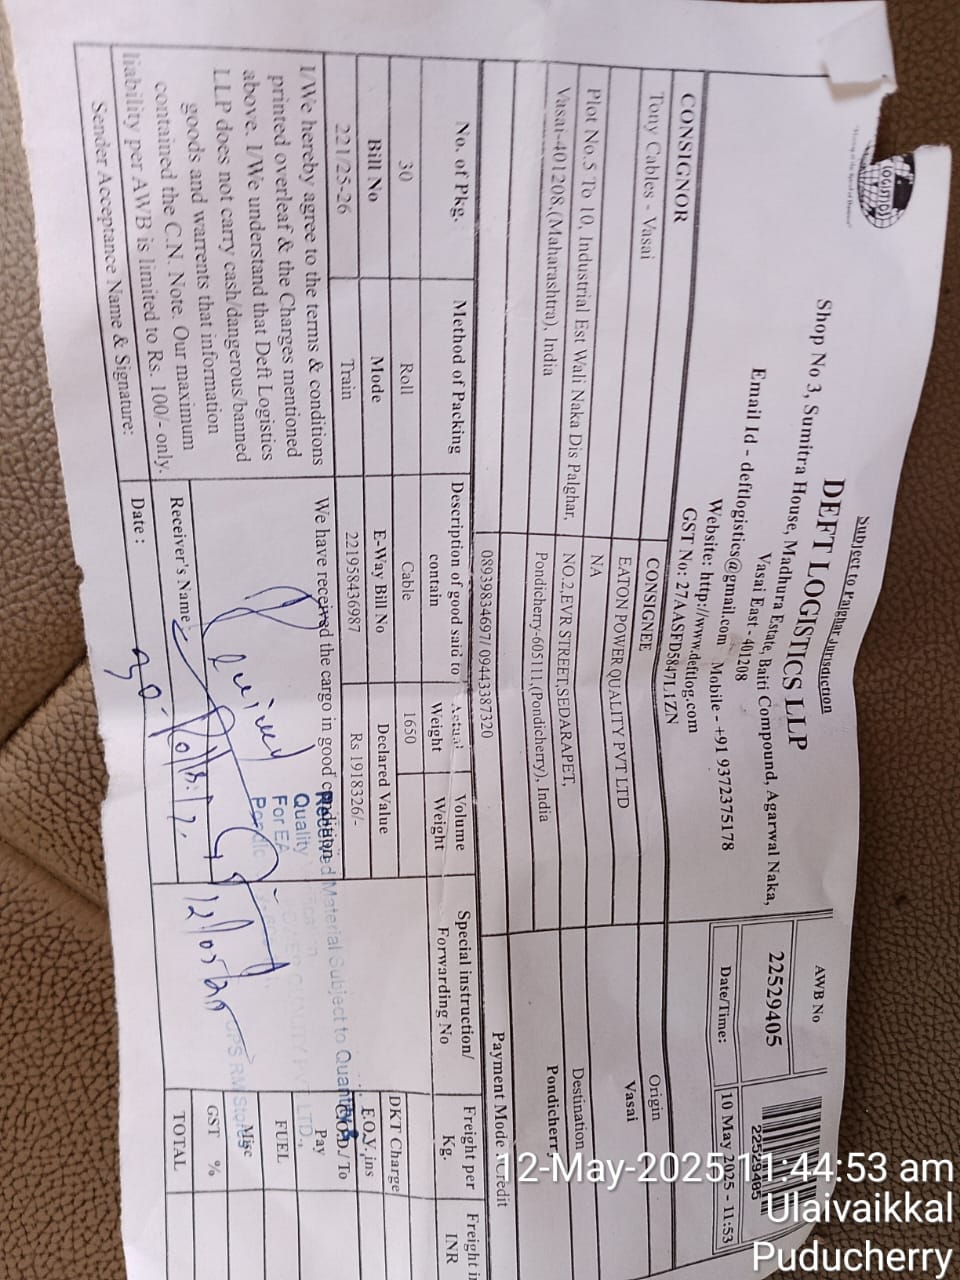 Subject to Palghar Jurisdiction
DEFT LOGISTICS LLP
Shop No 3, Sumitra House, Madhura Estate, Baiti Compound, Agarwal Naka,
Vasai East - 401208
Email Id - deftlogistics@gmail.com Mobile - +91 9372375178
Website: http://www.deftlog.com
GST No: 27AASFD5847L1ZN
LOGISTICS
AWB No
22529405
22529405
Date/Time:
10 May 2025 - 11:53
CONSIGNOR
CONSIGNEE
Origin
Tony Cables - Vasai
EATON POWER QUALITY PVT LTD
Vasai
NA
Plot No.5 To 10, Industrial Est Wali Naka Dis Palghar,
NO.2,EVR STREET,SEDARAPET,
Destination
Vasai-401208,(Maharashtra), India
Pondicherry-605111,(Pondicherry), India
Pondicherry
08939834697/ 09443387320
Payment Mode
Credit
No. of Pkg.
Method of Packing
Description of good said to contain
Actual Weight
Volume Weight
Special instruction/ Forwarding No
Freight per Kg.
Freight in INR
30
Roll
Cable
1650
DKT Charge
Bill No
Mode
E-Way Bill No
Declared Value
F.O.V. ins
221/25-26
Train
221958436987
Rs 1918326/-
C.O.D./ To Pay
I/We hereby agree to the terms & conditions
printed overleaf & the Charges mentioned
above. I/We understand that Deft Logistics
LLP does not carry cash/dangerous/banned
goods and warrents that information
contained the C.N. Note. Our maximum
liability per AWB is limited to Rs. 100/- only.
Sender Acceptance Name & Signature:
We have received the cargo in good condition
Received Material Subject to Quantity &
Quality
For EA
LTD.,
FUEL
Misc
GST %
TOTAL
RM Stores
Receiver's Name :
Date :
12-May-2025 11:44:53 am
Ulaivaikkal
Puducherry